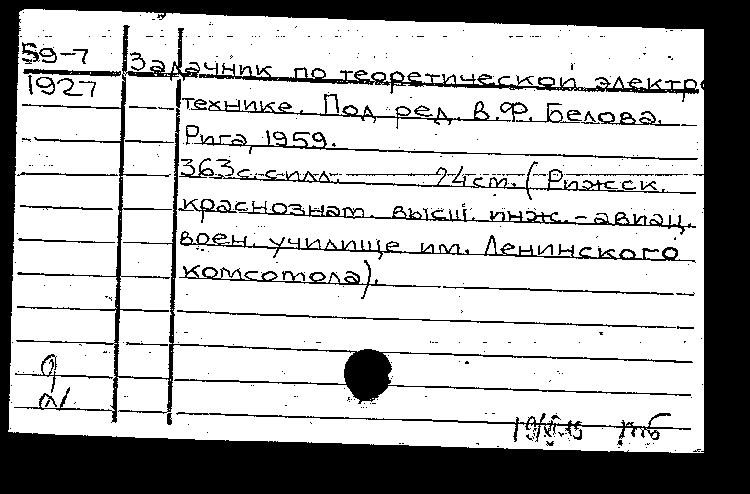 59-7
1927
Задачник по теоретической электро
технике. Под ред. В.Ф. Белова.
Рига, 1959.
363с. с илл. 24см. (Рижск.
краснознам. высш. инж.-авиац.
воен. училище им. Ленинского
комсомола).